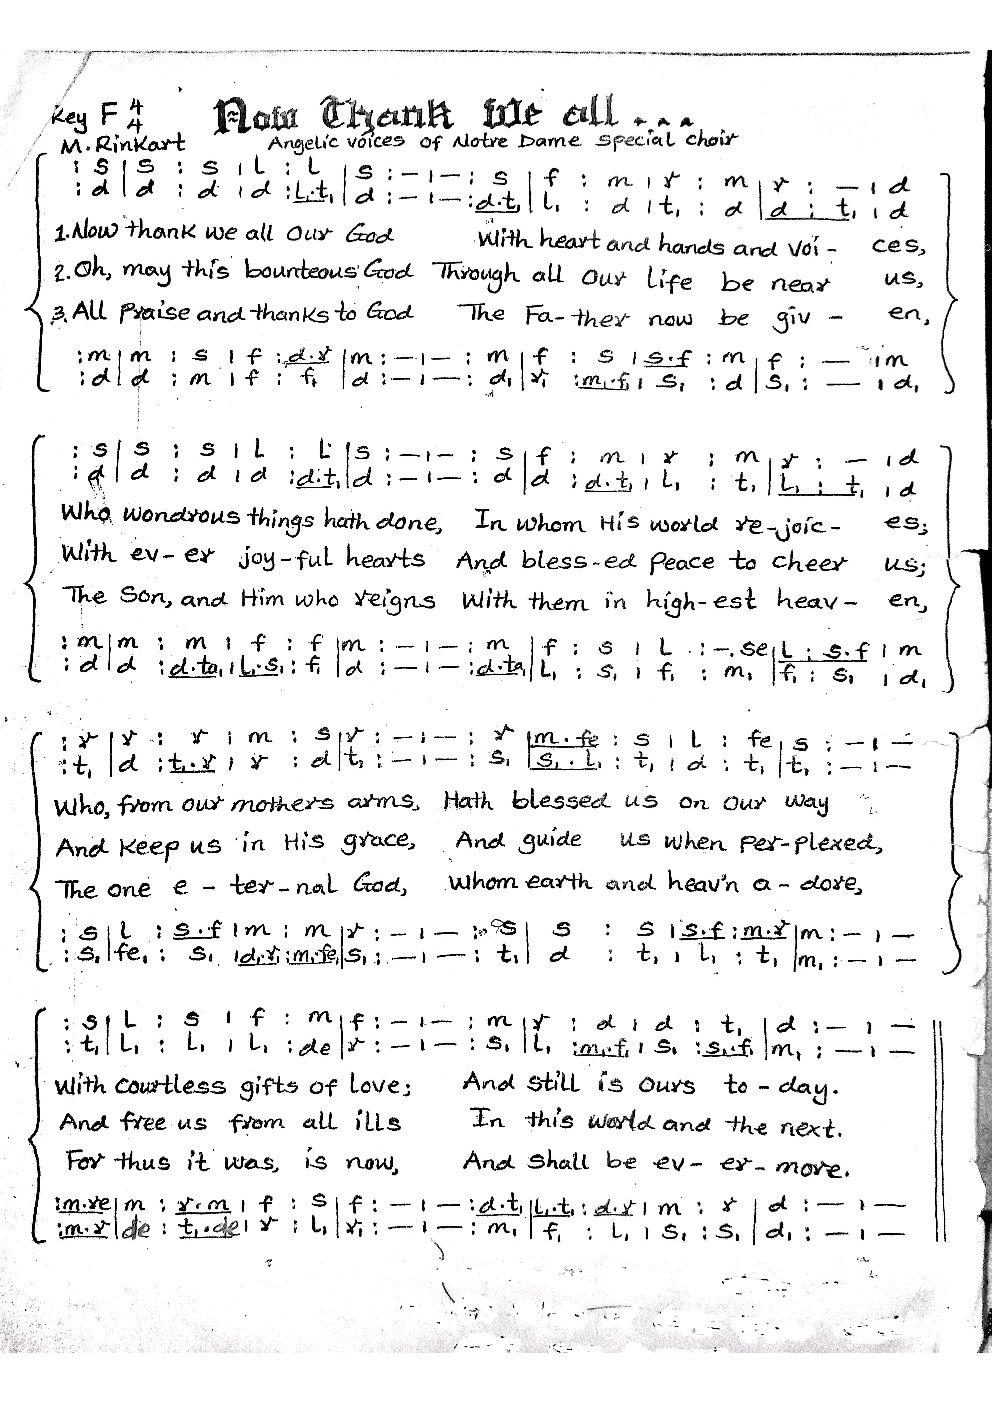 Key F 4/4 Now Thank We all...
M. Rinkart Angelic voices of Notre Dame special choir
: s | s : s ı L : L | s : – ı – : s | f : m ı r : m | r : – ı d
: d | d : d ı d : L.t, | d : – ı – : d.t, | L, : d ı t, : d | d : t, ı d
1. Now thank we all our God With heart and hands and voi- ces,
2. Oh, may this bounteous God Through all our life be near us,
3. All praise and thanks to God The Fa-ther now be giv- en,
: m | m : s ı f : d.r | m : – ı – : m | f : s ı s.f : m | f : – ı m
: d | d : m ı f : f, | d : – ı – : d, | r, : m,.f, ı s, : d | s, : – ı d,
: s | s : s ı L : L | s : – ı – : s | f : m ı r : m | r : – ı d
: d | d : d ı d : d.t, | d : – ı – : d | d : d.t, ı L, : t, | L, : t, ı d
Who wondrous things hath done, In whom His world re-joic- es;
With ev-er joy-ful hearts And bless-ed Peace to cheer us;
The Son, and Him who reigns With them in high-est heav- en,
: m | m : m ı f : f | m : – ı – : m | f : s ı L : –.se | L : s.f ı m
: d | d : d.ta, ı L,.s, : f, | d : – ı – : d.ta, | L, : s, ı f, : m, | f, : s, ı d,
: r | r : r ı m : s | r : – ı – : r | m.fe : s ı L : fe | s : – ı –
: t, | d : t,.r ı r : d | t, : – ı – : s, | s,.L, : t, ı d : t, | t, : – ı –
Who, from our mothers arms, Hath blessed us on our way
And Keep us in His grace, And guide us when per-plexed,
The one e-ter-nal God, Whom earth and heav'n a-dore,
: s | L : s.f ı m : m | r : – ı – : s | s : s ı s.f : m.r | m : – ı –
: s, | fe, : s, ı d.r : m.fe, | s, : – ı – : t, | d : t, ı L, : t, | m, : – ı –
: s | L : s ı f : m | f : – ı – : m | r : d ı d : t, | d : – ı –
: t, | L, : L, ı L, : de | r : – ı – : s, | L, : m,.f, ı s, : s,.f, | m, : – ı –
With courtless gifts of love; And still is ours to-day.
And free us from all ills In this world and the next.
For thus it was, is now, And shall be ev-er-more.
: m.re | m : r.m ı f : s | f : – ı – : d.t, | L,.t, : d.r ı m : r | d : – ı –
: m.r | de : t,.de ı r : L, | r, : – ı – : m, | f, : L, ı s, : s, | d, : – ı –